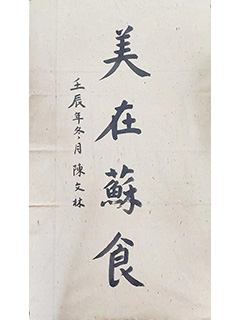 美在蘇食
壬辰年冬月 陳文林